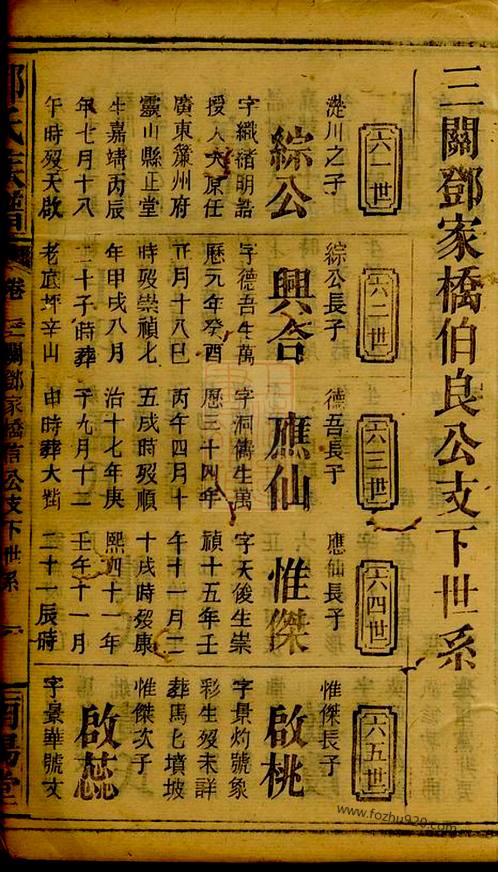 三關鄧家橋伯良公支下世系
六一世
漇川之子
綜公
字織緒明誥
授人大原任
廣東簾州府
靈山縣正堂
生嘉靖丙辰
年七月十八
午時歿天啟
六二世
綜公長子
興合
字德吾生萬
曆元年癸酉
正月十八巳
時歿崇禎七
年甲戌八月
二十子時葬
老底坪辛山
六三世
德吾長子
應仙
字洞儔生萬
曆三十四年
丙午四月十
五戌時歿順
治十七年庚
子九月十二
申時葬大對
六四世
應仙長子
惟傑
字天後生崇
禎十五年壬
午十一月二
十戌時歿康
熙四十一年
壬午十一月
二十一辰時
六五世
惟傑長子
啟桃
字景灼號象
彩生歿未詳
葬馬七墳坡
惟傑次子
啟蕊
字景華號文
卷
三關鄧家橋伯公支下世系
www.fozhu920.com